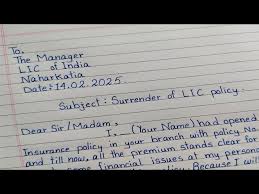 To,
The Manager
LIC of India
Naharkatia
Date: 14.02.2025
Subject: Surrender of LIC policy.
Dear Sir/Madam,
I, — (Your Name) had opened
Insurance policy in your branch with policy No
and till now, all the premium stands clear for
some financial issues at my personal
policy. Because I will